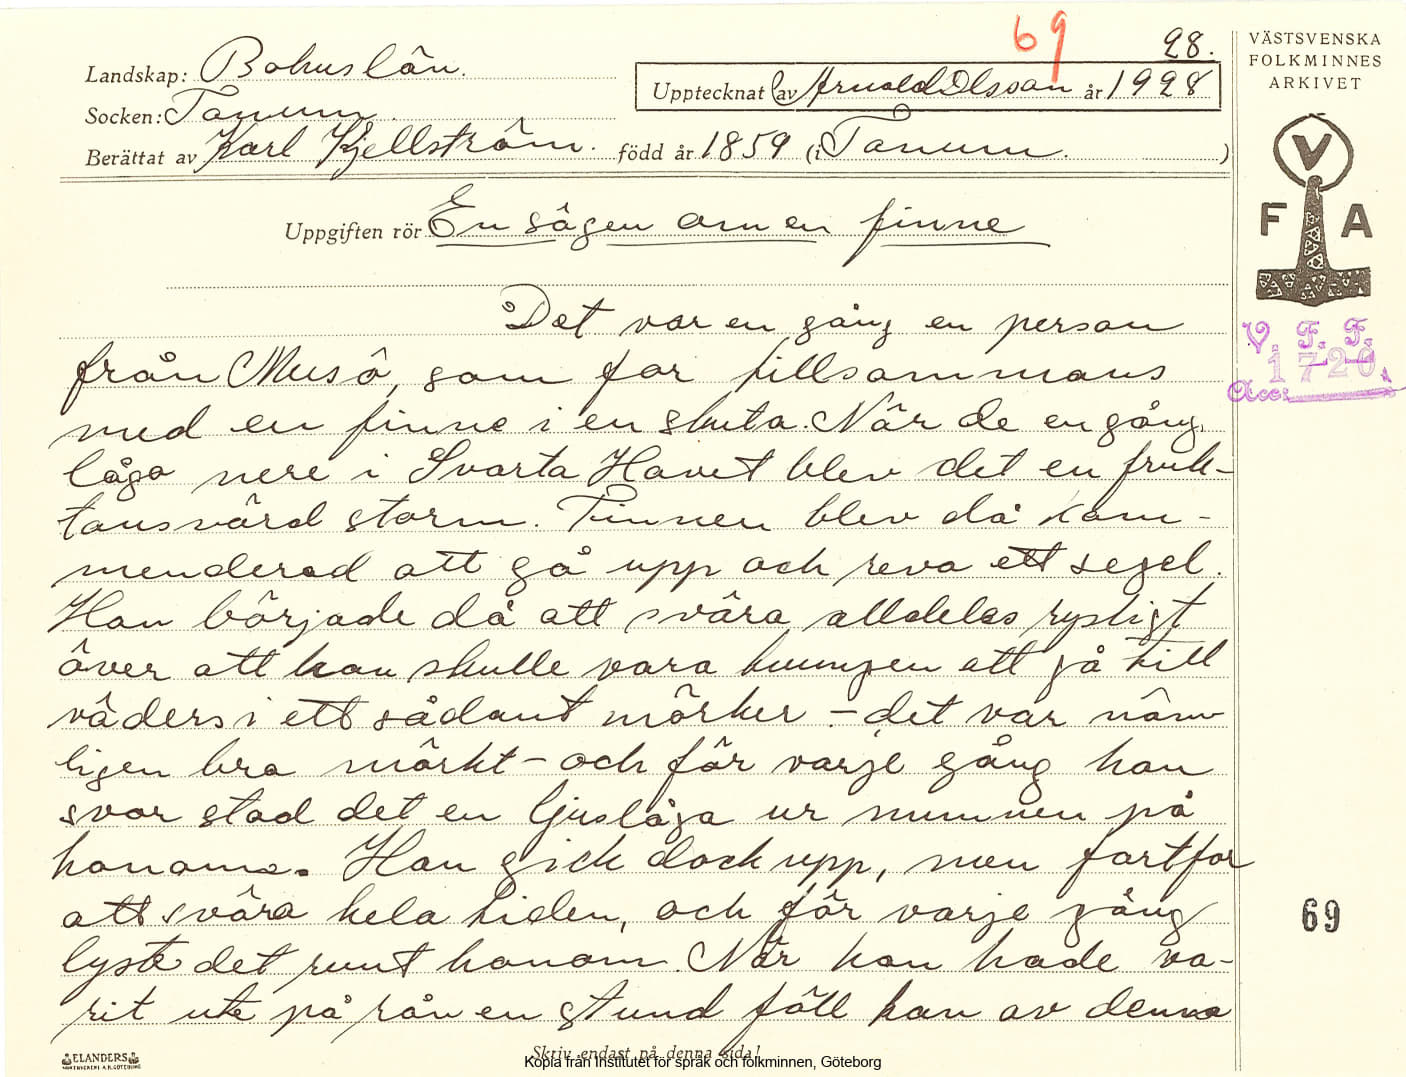 69
28.
Landskap: Bohuslän.
Upptecknat av Arnold Olsson år 1928
Socken: Tanum
Berättat av Karl Kjellström. född år 1859 (i Tanum. )
Uppgiften rör En sägen om en finne
VÄSTSVENSKA
FOLKMINNES
ARKIVET
V
F A
V. F. F.
1720
Acc:
Det var en gång en person
från Musö, som for tillsammans
med en finne i en skuta. När de en gång
lågo nere i Svarta Havet blev det en fruk-
tansvärd storm. Finnen blev då kom-
menderad att gå upp och reva ett segel.
Han började då att svära alldeles rysligt
över att han skulle vara tvungen att gå till
väders i ett sådant mörker – det var näm-
ligen bra mörkt – och för varje gång han
svor stod det en ljuslåga ur munnen på
honom. Han gick dock upp, men fortfor
att svära hela tiden, och för varje gång
lyste det runt honom. När han hade va-
rit ute på rån en stund föll han av denna
69
ELANDERS
Skriv endast på denna sida!
Kopia från Institutet för språk och folkminnen, Göteborg